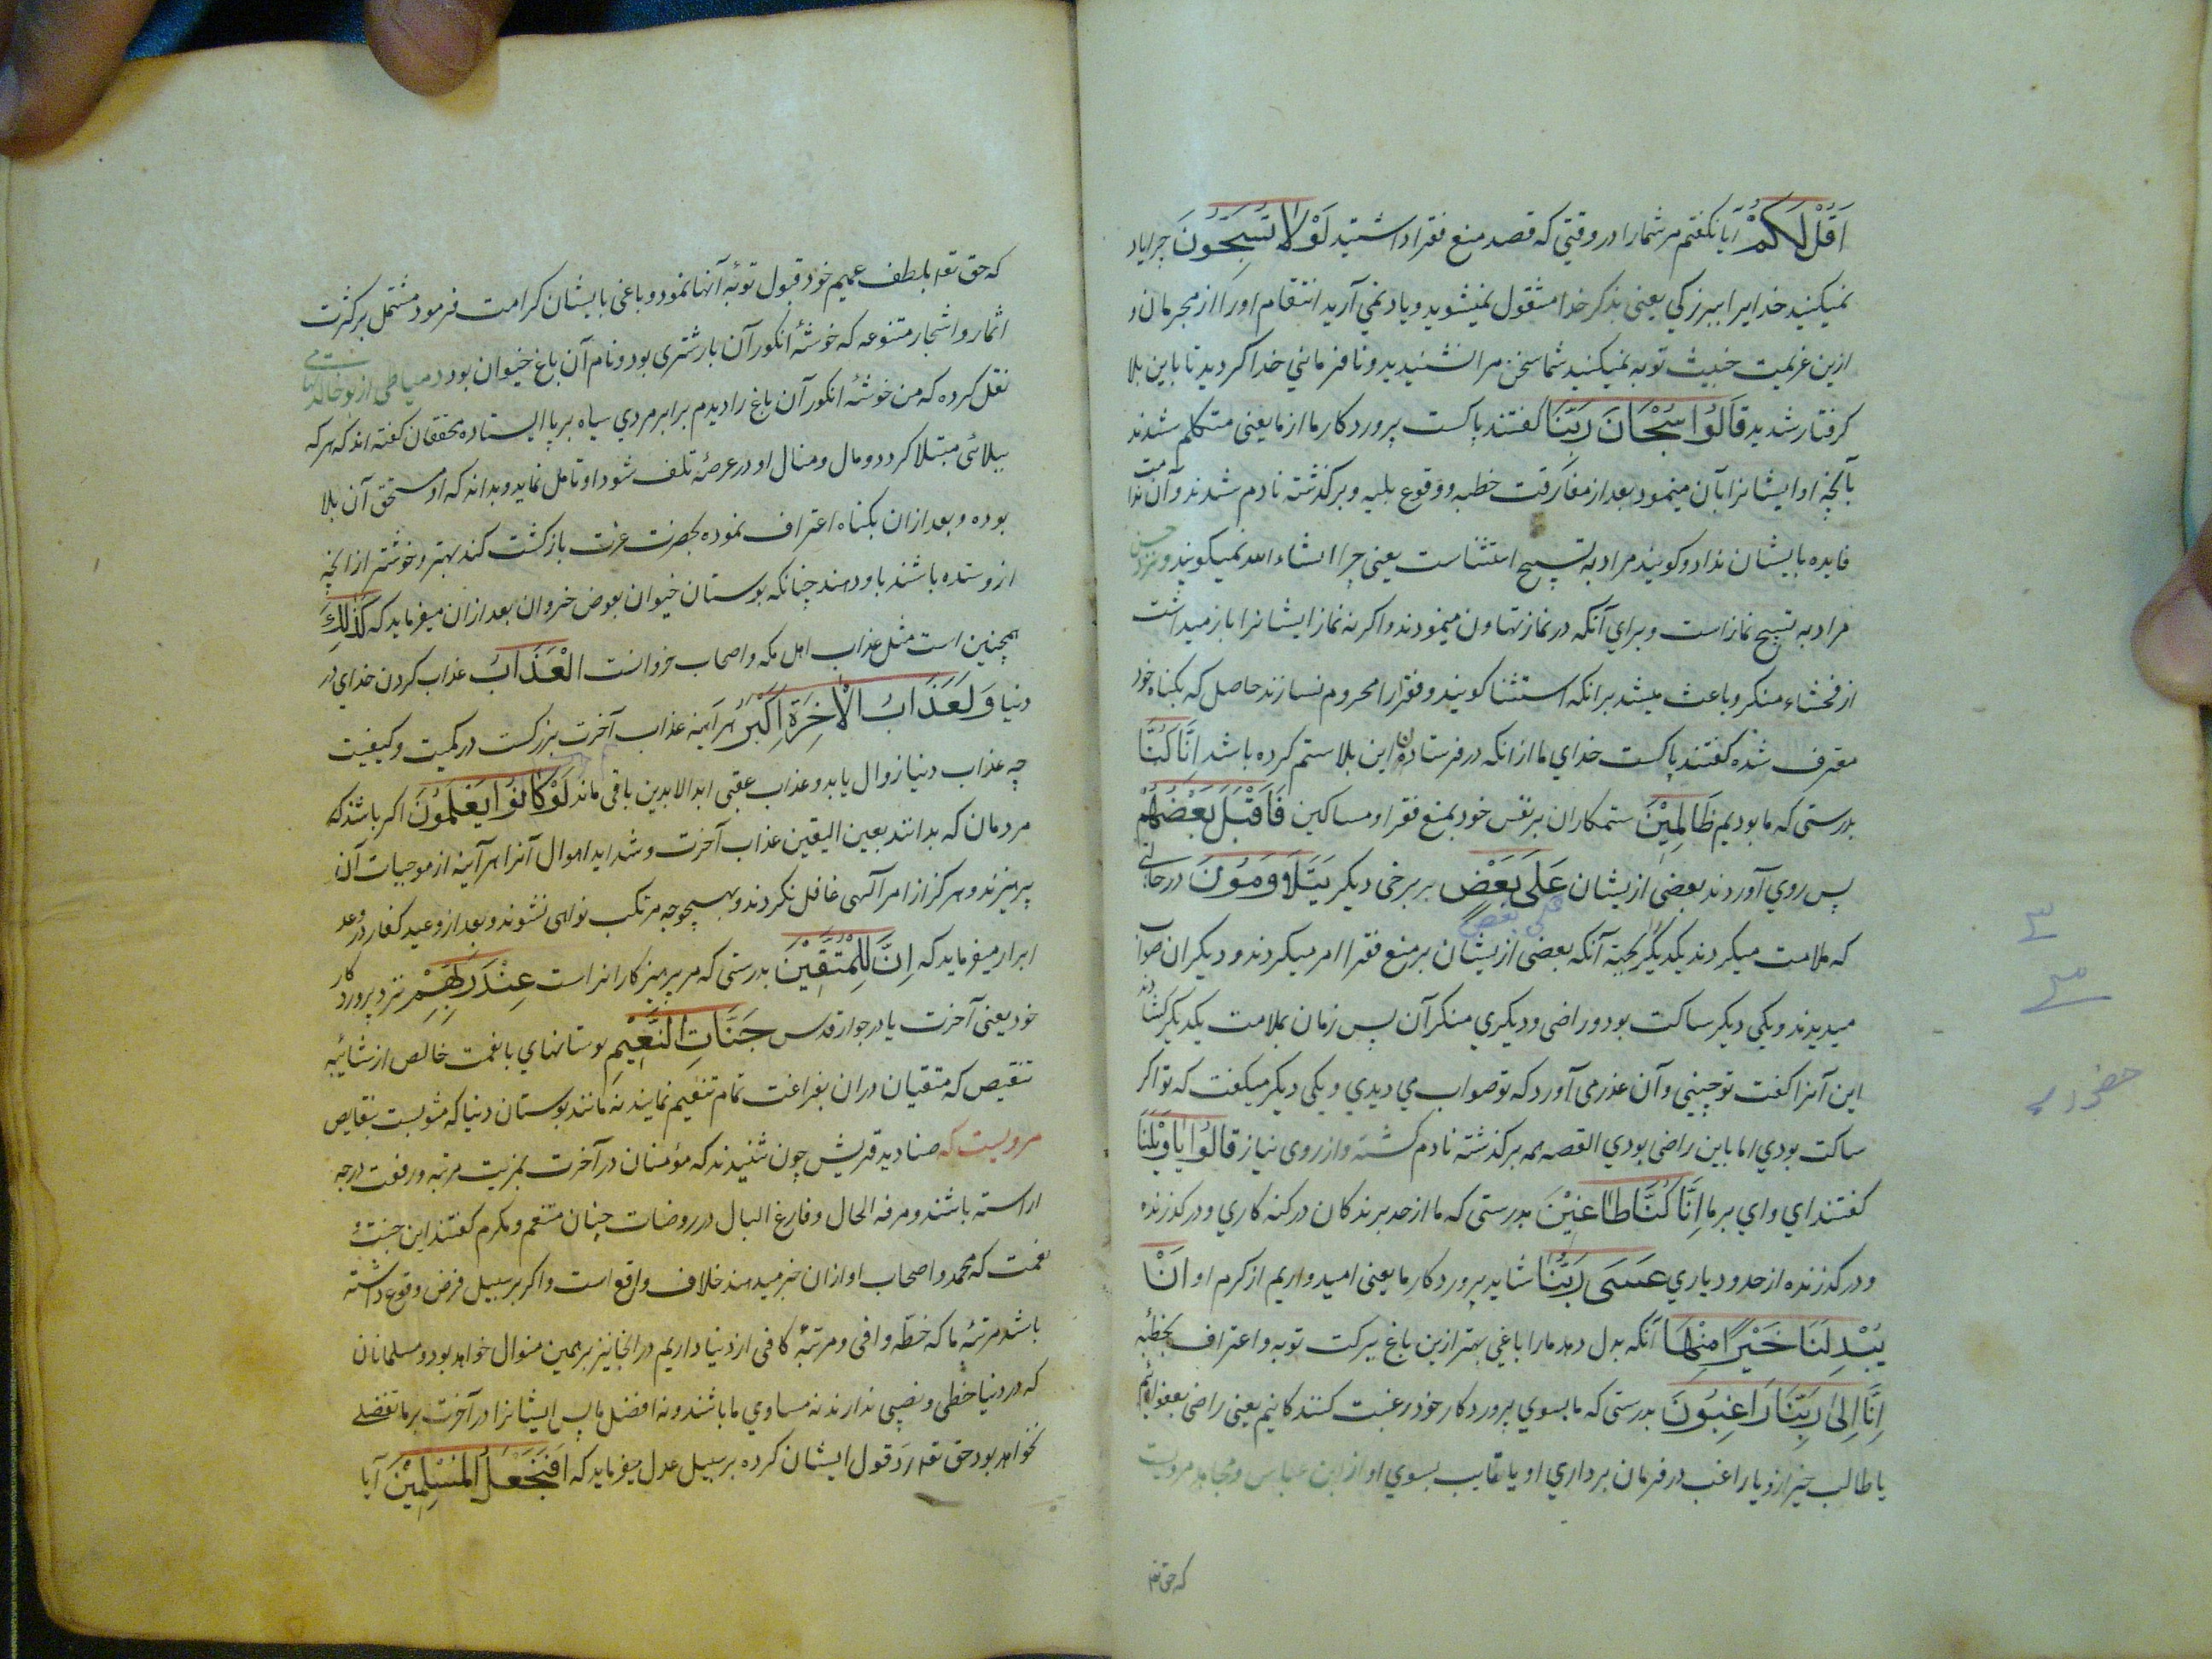 اَقُلْ لَكُمْ آیا نکفتم مر شما را در وقتی که قصد منع فقرا داشتید لَوْلا تُسَبِّحُونَ چرا یاد
نمیکنید خدایرا ببزرکی یعنی بذکر خدا مشغول نمیشوید و یاد نمی آرید انتقام او را از مجرمان و
ازین عزیمت خبیث توبه نمیکنید شما سخن مرا نشنیدید و نافرمانی خدا کردید تا باین بلا
کرفتار شدید قَالُوا سُبْحَانَ رَبِّنَا کفتند پاکست پروردکار ما از ما یعنی متکلم شدند
بآنچه او ایشانرا بآن مینمود بعد از مفارقت خطیه و وقوع بلیه و بر کذشته نادم شدند و آن ندامت
فایده بایشان نداد و کویند مراد به تسبیح استثناست یعنی چرا انشاء الله نمیکویید و نزد حسن
مراد به تسبیح نماز است و برای آنکه در نماز تهاون مینمودند و اکر نه نماز ایشانرا باز میداشت
از فحشاء منکر و باعث میشد برانکه استثنا کویند و فقرا را محروم نسازند حاصل که بکناه خود
معترف شده کفتند پاکست خدای ما از انکه در فرستادن این بلا ستم کرده باشد اِنَّا كُنَّا
بدرستی که ما بودیم ظَالِمِيْنَ ستمکاران بر نفس خود بمنع فقرا و مساکین فَاَقْبَلَ بَعْضُهُمْ
پس روی آوردند بعضی ازیشان عَلَی بَعْضٍ بر برخی دیکر يَتَلَاوَمُوْنَ در حالتی
علی بعض
که ملامت میکردند یکدیکر را بجهة آنکه بعضی ازیشان بر منع فقرا امر میکردند و دیکران صواب
میدیدند و یکی دیکر ساکت بود و راضی و دیکری منکر آن پس زمان بملامت یکدیکر کشادند
این آنرا کفت تو چنینی و آن عذر می آورد که تو صواب می دیدی و یکی دیکر میکفت که تو اکر
ساکت بودی اما باین راضی بودی القصه همه بر کذشته نادم کشته و از روی نیاز قالُوْا يَا وَيْلَنَا
کفتند ای وای بر ما اِنَّا كُنَّا طَاغِيْنَ بدرستی که ما از حد برندکان در کنه کاری و در کذرنده
و در کذرنده از حدود یاری عَسَی رَبُّنَا شاید پروردکار ما یعنی امیدواریم از کرم او اَنْ
يُبْدِلَنَا خَيْرًا مِنْهَا آنکه بدل دهد ما را باغی بهتر ازین باغ ببرکت توبه و اعتراف بخطیئه
اِنَّا اِلَی رَبِّنَا رَاغِبُوْنَ بدرستی که ما بسوی پروردکار خود رغبت کنندکانیم یعنی راضی بعفو اوئیم
یا طالب خیر ازو یا راغب در فرمان برداری او یا تایب بسوی او از ابن عباس و مجاهد مرویست
که حق تعا
که حق تعا بلطف عمیم خود قبول توبه آنها نمود و باغی بایشان کرامت فرمود مشتمل بر کثرت
اثمار و اشجار متنوعه که خوشهٔ انکور آن بار شتری بود و نام آن باغ خیوان بود دمیاطی از بو خالد
نقل کرده که من خوشهٔ انکور آن باغ را دیدم برابر مردی سیاه برپا ایستاده محققان کفته اند که هر که
ببلائی مبتلا کردد و مال و منال او در عرصهٔ تلف شود او تامل نماید و بداند که او مستحق آن بلا
بوده و بعد ازان بکناه اعتراف نموده بحضرت عزت بازکشت کند بهتر و خوشتر از آنچه
ازو ستده باشند باو دهند چنانکه بوستان خیوان بعوض ضروان بعد ازان میفرماید که كَذٰلِكَ
همچنین است مثل عذاب اهل مکه و اصحاب ضروانست الْعَذَابُ عذاب کردن خدای در
دنیا وَلَعَذَابُ الْاٰخِرَةِ اَكْبَرُ هر آینه عذاب آخرت بزرکست در کمیت و کیفیت
چه عذاب دنیا زوال یابد و عذاب عقبی ابد الابدین باقی ماند لَوْ كَانُوْا يَعْلَمُوْنَ اکر باشند که
مردمان که بدانند بعین الیقین عذاب آخرت و شداید اهوال آنرا هر آینه از موجبات آن
پرهیزند و هرکز از امر الهی غافل نکردند و بهیچوجه مرتکب نواهی نشوند و بعد از وعید کفار در وعد
ابرار میفرماید که اِنَّ لِلْمُتَّقِيْنَ بدرستی که مر پرهیزکارانراست عِنْدَ رَبِّهِمْ نزد پروردکار
خود یعنی آخرت یا در جوار قدس جَنَّاتِ النَّعِيْمِ بوستانهای با نعمت خالص از شائبه
تنقیص که متقیان دران بفراغت تمام تنعیم نمایند نه مانند بوستان دنیا که مشوبست بنقایص
مرویست که صنادید قریش چون شنیدند که مؤمنان در آخرت بمزیت مرتبه و رفعت درجه
اراسته باشند و مرفه الحال و فارغ البال در روضات جنان متنعم و مکرم کفتند این جنت و
نعمت که محمد و اصحاب او ازان خبر میدهند خلاف واقع است و اکر بر سبیل فرض وقوع داشته
باشد مرتبهٔ ما که حظّه وافی و مرتبهٔ کافی از دنیا داریم در آنجا نیز بر همین منوال خواهد بود و مسلمانان
که در دنیا حظی و نصیبی ندارند نه مساوی ما باشند و نه افضل ما پس ایشانرا در آخرت بر ما تفضلی
نخواهد بود حق تعا رد قول ایشان کرده بر سبیل عدل میفرماید که اَفَنَجْعَلُ الْمُسْلِمِيْنَ آیا